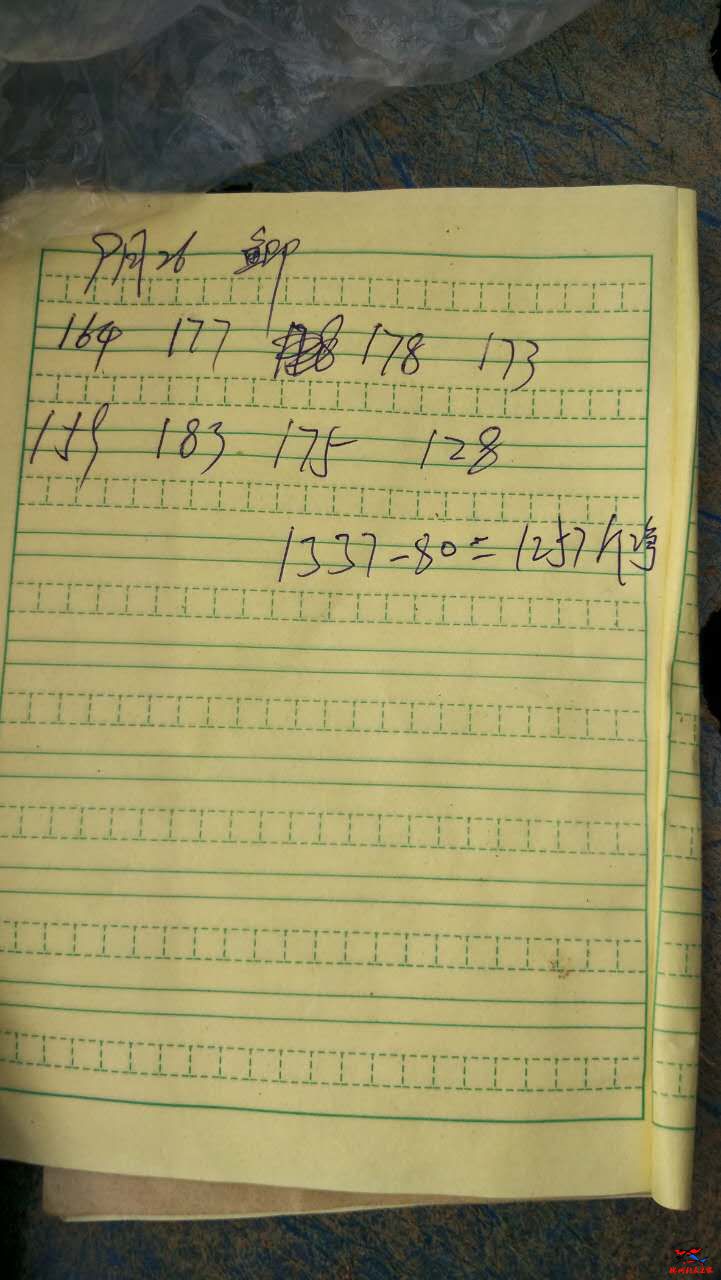 9月26 鲫
164 177 178 173
159 183 175 128
1337-80=1257斤净